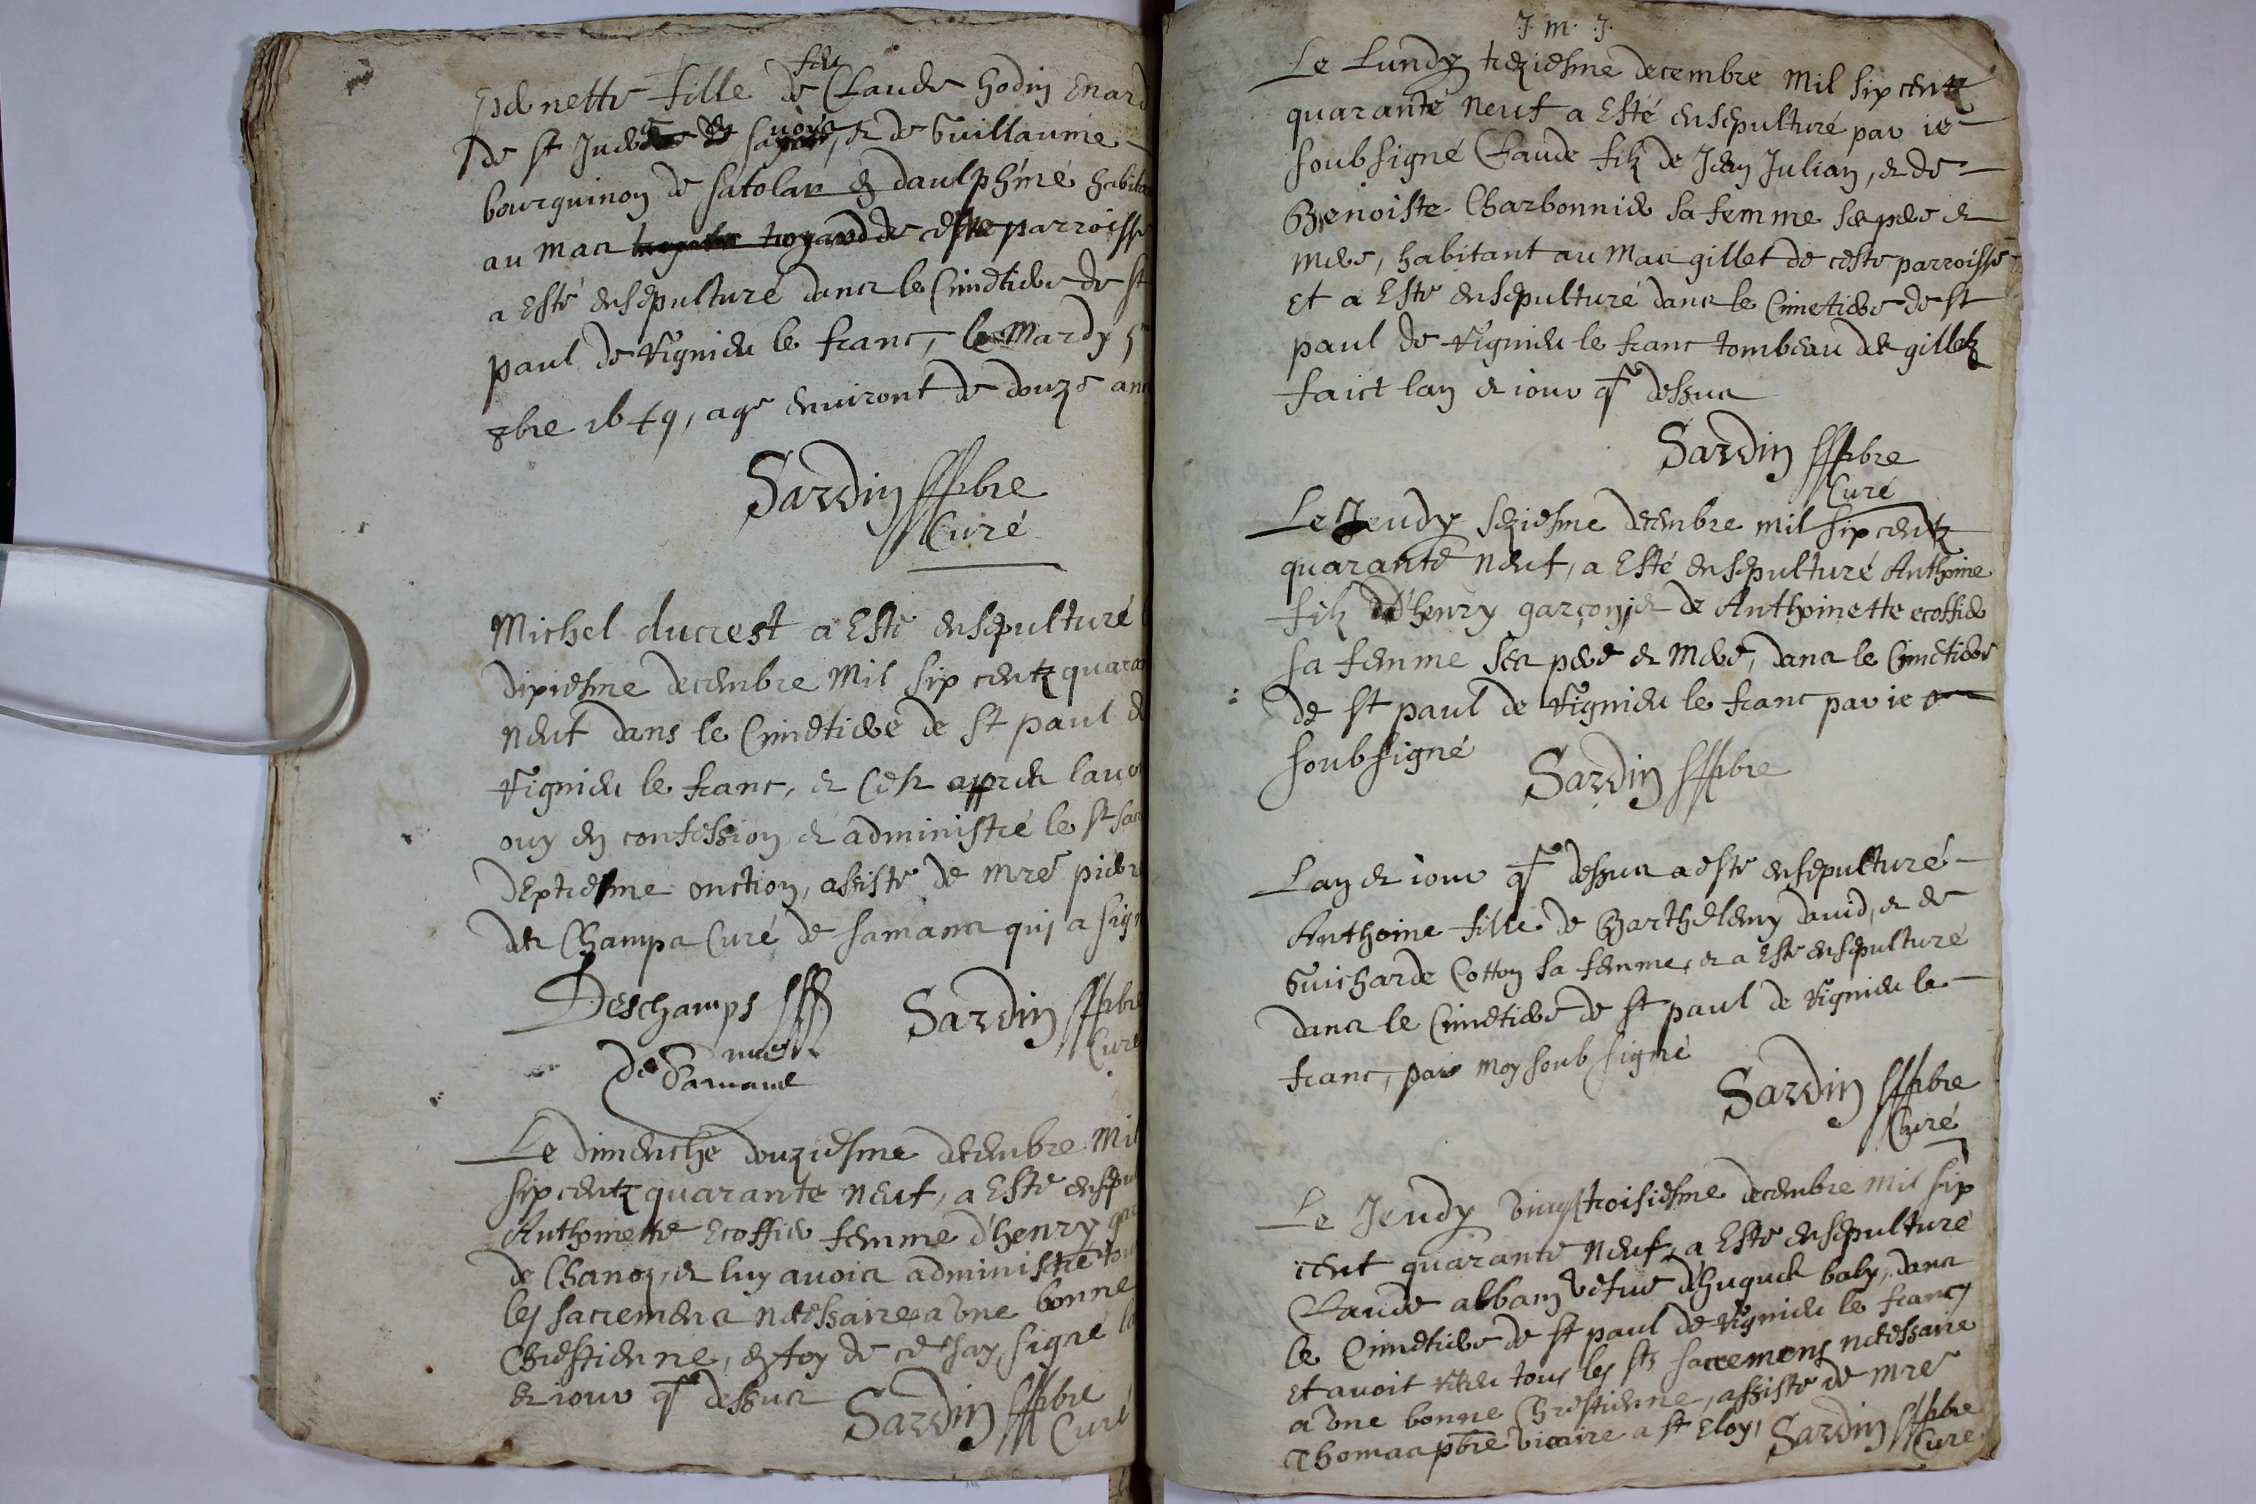 fille de feu Claude hodin
de st Jude savoye, et de Guillaume
bourguinon de satolar en daulphiné habita
au mas de ceste parroisse
a Esté ensepulturé dans le Cimetiere de st
paul de Vignieu le franc, le Mardy
9bre 1649, age environt de douze ans
Sardin pbre
Curé
Michel ducrest a Esté ensepulturé
dixiesme decembre Mil six centz quara
neuf dans le Cimetiere de st paul de
Vignieu le franc, et Cest appres lavo
ouy en confession et administré le st sac
dextresme onction, assisté de mre pierr
des Champs Curé de samans qui a sign
Deschamps
Sardin pbre
Curé
de
Le dimenche douziesme decembre Mil
six centz quarante neuf, a Esté ensepu
Anthoinette Ecoffier femme d'henry
de Chanoz, et luy avoir administré tou
les sacremens necessaires a une bonne
Chrestienne, en foy de ce jay signé la
et jour q dessus
Sardin pbre
Curé
J. m. J.
Le Lundy treziesme decembre Mil six centz
quarante neuf a Esté ensepulturé par ie
soubsigné Claude filz de Jean Julian, et de
Benoiste Charbonnier sa femme ses pere et
mere, habitant au mas gillet de ceste parroisse
Et a Esté ensepulturé dans le Cimetiere de st
paul de Vignieu le franc tombeau des gilletz
faict lan et jour q dessus
Sardin pbre
Curé
Le Jeudy seziesme decembre mil six centz
quarante neuf, a Esté ensepulturé Anthoine
filz d'henry garçon, et de Anthoinette ecoffier
sa femme ses pere et mere, dans le Cimetiere
de st paul de Vignieu le franc par ie
soubsigné
Sardin pbre
Lan et jour q dessus a esté ensepulturé
Anthoine fille de Barthelemy david, et de
Guicharde Cotton sa femme, et a Esté ensepulturé
dans le Cimetiere de st paul de Vignieu le
franc, par moy soubsigné
Sardin pbre
Curé
Le Jeudy vingt troisiesme decembre mil six
cent quarante neuf, a Esté ensepulturé
Claude alban vefve d'huguet baly, dans
le Cimetiere de st paul de Vignieu le franc,
et avoit receu tous les sts sacremens necessaire
a une bonne Chrestienne, assisté de mre
Thomas pbre vicaire a st Eloy, Sardin pbre
Curé